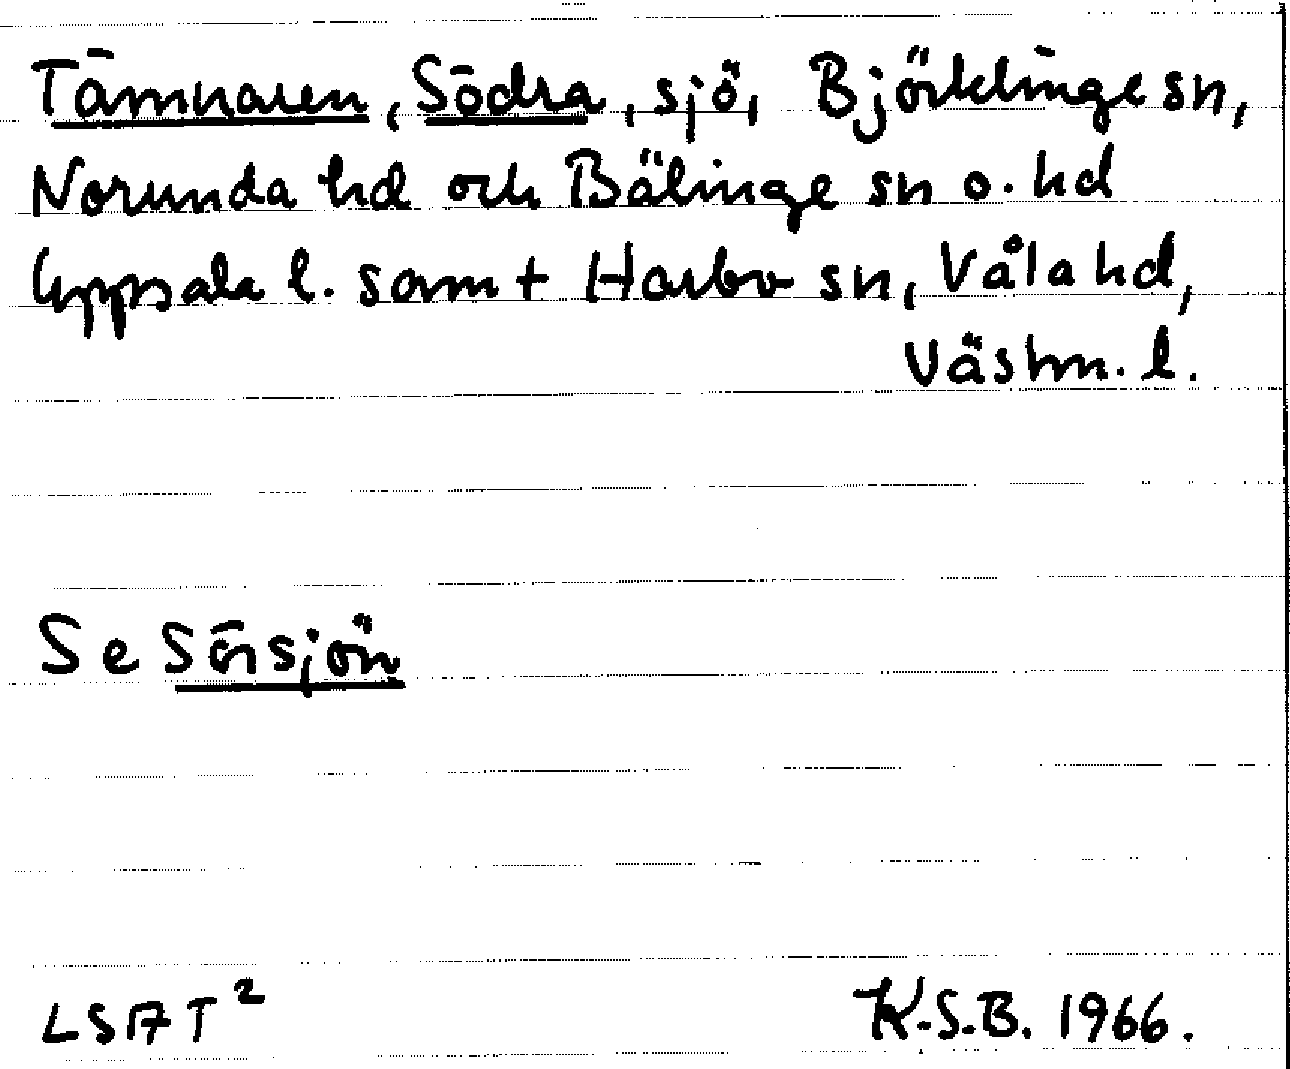 Tämnaren, Södra, sjö, Björklinge sn,
Norunda hd och Bälinge sn o. hd
Uppsala l. samt Harbo sn, Våla hd,
Västm. l.
Se Sörsjön
LSA T²
K.S.B. 1966.